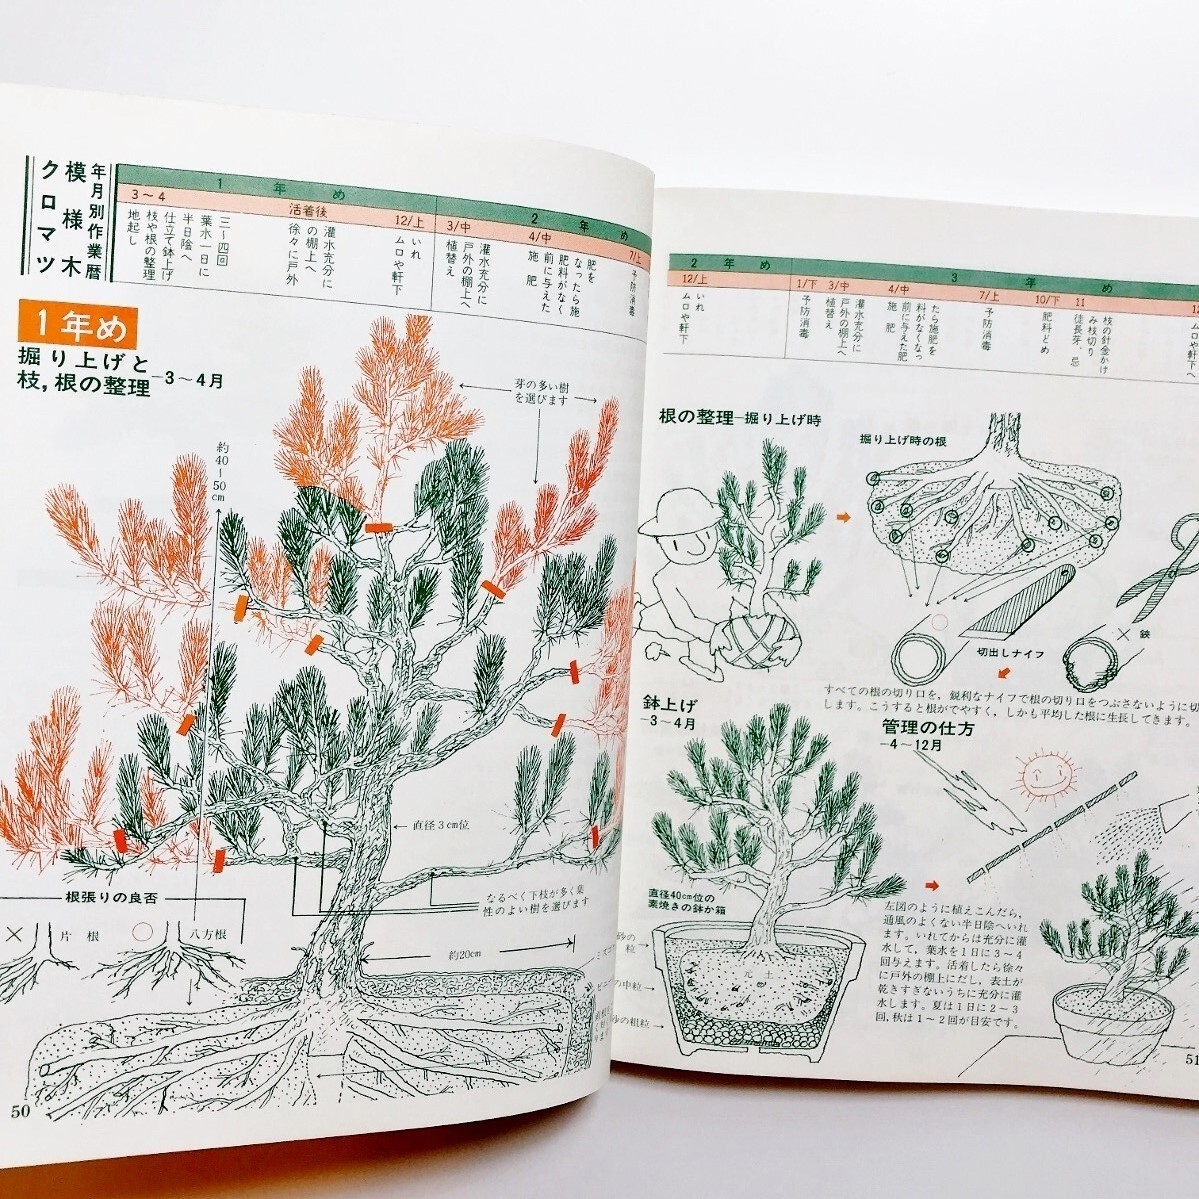 年月別作業暦
模様木
クロマツ
1年め
2年め
3～4
活着後
12/上
3/中
4/中
7/上
地起し
枝や根の整理
仕立て鉢上げ
半日陰へ
葉水一日に
三～四回
徐々に戸外
の棚上へ
灌水充分に
ムロや軒下
いれ
植替え
戸外の棚上へ
灌水充分に
施肥
前に与えた
肥料がなく
なったら施
肥を
予防消毒
1年め
掘り上げと
枝，根の整理－3～4月
芽の多い樹
を選びます
約40～50cm
直径3cm位
なるべく下枝が多く葉
性のよい樹を選びます
約20cm
根張りの良否
× 片根
○ 八方根
50
2年め
3年め
12/上
1/下
3/中
4/中
7/上
10/下
11
ムロや軒下
いれ
予防消毒
植替え
戸外の棚上へ
灌水充分に
施肥
前に与えた肥
料がなくなっ
たら施肥を
予防消毒
肥料どめ
徒長芽，忌
み枝切り
枝の針金かけ
ムロや軒下へ
根の整理－掘り上げ時
掘り上げ時の根
○
切出しナイフ
× 鋏
すべての根の切り口を，鋭利なナイフで根の切り口をつぶさないように切
します。こうすると根がでやすく，しかも平均した根に生長してきます。
鉢上げ
－3～4月
直径40cm位の
素焼きの鉢か箱
元土
砂の
粒
の中粒
砂の粗粒
管理の仕方
－4～12月
左図のように植えこんだら，
通風のよくない半日陰へいれ
ます。いれてからは充分に灌
水して，葉水を1日に3～4
回与えます。活着したら徐々
に戸外の棚上にだし，表土が
乾きすぎないうちに充分に灌
水します。夏は1日に2～3
回，秋は1～2回が目安です。
51